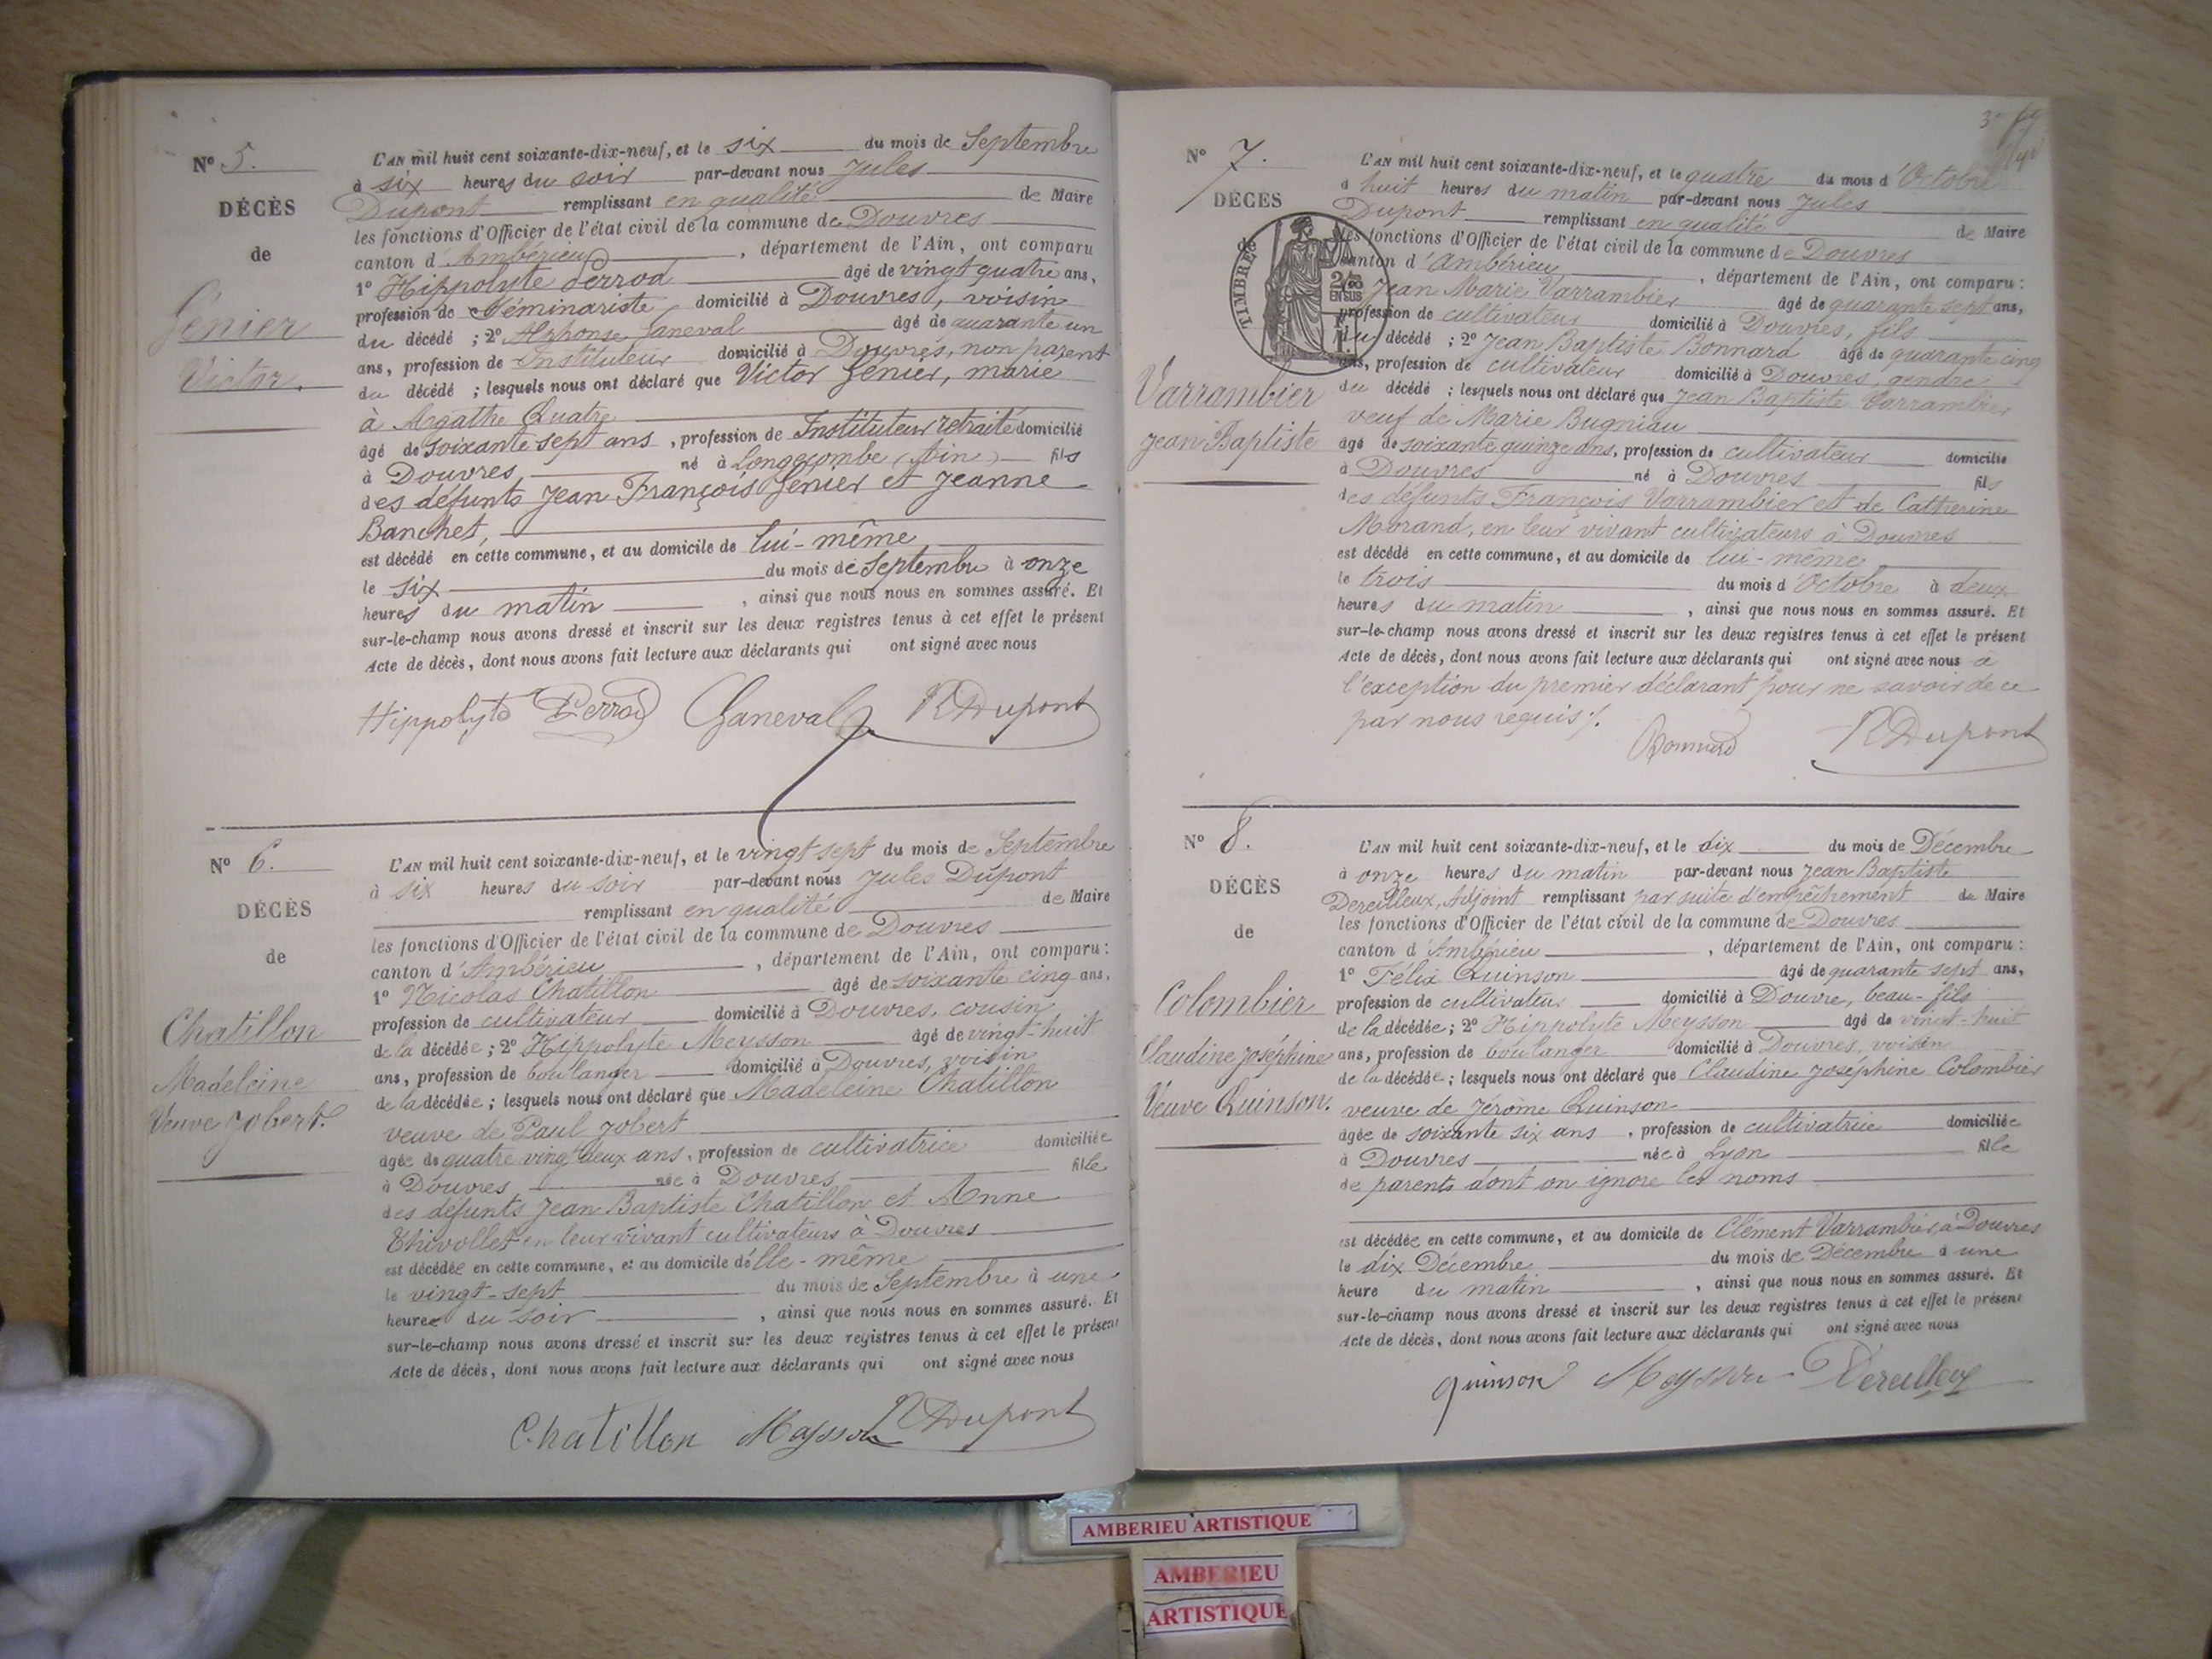 N° 5.
DÉCÈS
de
Génier
Victor.
L'AN mil huit cent soixante-dix-neuf, et le six du mois de Septembre
à six heures du soir par-devant nous Jules
Dupont remplissant en qualité de Maire
les fonctions d'Officier de l'état civil de la commune de Douvres
canton d'Ambérieu, département de l'Ain, ont comparu
1° Hippolyte Perrod âgé de vingt quatre ans,
profession de Séminariste domicilié à Douvres, voisin
du décédé ; 2° Alphonse Ganeval âgé de quarante un
ans, profession de Instituteur domicilié à Douvres, non parent
du décédé ; lesquels nous ont déclaré que Victor Génier, marie
à Agathe Quatre
âgé de soixante sept ans, profession de Instituteur retraité domicilié
à Douvres né à Longecombe (Ain) fils
des défunts Jean François Génier et Jeanne
Banchet,
est décédé en cette commune, et au domicile de lui-même
le six du mois de Septembre à onze
heures du matin, ainsi que nous nous en sommes assuré. Et
sur-le-champ nous avons dressé et inscrit sur les deux registres tenus à cet effet le présent
Acte de décès, dont nous avons fait lecture aux déclarants qui ont signé avec nous
Hippolyte Perrod Ganeval Dupont
N° 6.
DÉCÈS
de
Chatillon
Madeleine
Veuve Jobert.
L'AN mil huit cent soixante-dix-neuf, et le vingt sept du mois de Septembre
à six heures du soir par-devant nous Jules Dupont
remplissant en qualité de Maire
les fonctions d'Officier de l'état civil de la commune de Douvres
canton d'Ambérieu, département de l'Ain, ont comparu :
1° Nicolas Chatillon âgé de soixante cinq ans,
profession de cultivateur domicilié à Douvres, cousin
de la décédée ; 2° Hippolyte Meysson âgé de vingt-huit
ans, profession de boulanger domicilié à Douvres, voisin
de la décédée ; lesquels nous ont déclaré que Madeleine Chatillon
veuve de Paul Jobert
âgée de quatre vingt deux ans, profession de cultivatrice domiciliée
à Douvres née à Douvres fille
des défunts Jean Baptiste Chatillon et Anne
Thivollet en leur vivant cultivateurs à Douvres
est décédée en cette commune, et au domicile d'elle-même
le vingt-sept du mois de Septembre à une
heure du soir, ainsi que nous nous en sommes assuré. Et
sur-le-champ nous avons dressé et inscrit sur les deux registres tenus à cet effet le présent
Acte de décès, dont nous avons fait lecture aux déclarants qui ont signé avec nous
Chatillon Meysson Dupont
N° 7.
DÉCÈS
de
TIMBRE
2/10 EN SUS
Varrambier
Jean Baptiste
L'AN mil huit cent soixante-dix-neuf, et le quatre du mois d'Octobre
à huit heures du matin par-devant nous Jules
Dupont remplissant en qualité de Maire
les fonctions d'Officier de l'état civil de la commune de Douvres
canton d'Ambérieu, département de l'Ain, ont comparu :
Jean Marie Varrambier âgé de quarante sept ans,
profession de cultivateur domicilié à Douvres, fils
du décédé ; 2° Jean Baptiste Bonnard âgé de quarante cinq
ans, profession de cultivateur domicilié à Douvres, gendre
du décédé ; lesquels nous ont déclaré que Jean Baptiste Varrambier
veuf de Marie Bugniau
âgé de soixante quinze ans, profession de cultivateur domicilié
à Douvres né à Douvres fils
des défunts François Varrambier et de Catherine
Morand, en leur vivant cultivateurs à Douvres
est décédé en cette commune, et au domicile de lui-même
le trois du mois d'Octobre à deux
heures du matin, ainsi que nous nous en sommes assuré. Et
sur-le-champ nous avons dressé et inscrit sur les deux registres tenus à cet effet le présent
Acte de décès, dont nous avons fait lecture aux déclarants qui ont signé avec nous à
l'exception du premier déclarant pour ne savoir de ce
par nous requis ./.
Bonnard Dupont
N° 8.
DÉCÈS
de
Colombier
Claudine Joséphine
Veuve Quinson.
L'AN mil huit cent soixante-dix-neuf, et le dix du mois de Décembre
à onze heures du matin par-devant nous Jean Baptiste
Dereilleux, Adjoint remplissant par suite d'empêchement de Maire
les fonctions d'Officier de l'état civil de la commune de Douvres
canton d'Ambérieu, département de l'Ain, ont comparu :
1° Félix Quinson âgé de quarante sept ans,
profession de cultivateur domicilié à Douvre, beau-fils
de la décédée ; 2° Hippolyte Meysson âgé de vingt-huit
ans, profession de boulanger domicilié à Douvres, voisin
de la décédée ; lesquels nous ont déclaré que Claudine Joséphine Colombier
veuve de Jérôme Quinson
âgée de soixante six ans, profession de cultivatrice domiciliée
à Douvres née à Lyon fille
de parents dont on ignore les noms
est décédée en cette commune, et au domicile de Clément Varrambier, à Douvres
le dix Décembre du mois de Décembre à une
heure du matin, ainsi que nous nous en sommes assuré. Et
sur-le-champ nous avons dressé et inscrit sur les deux registres tenus à cet effet le présent
Acte de décès, dont nous avons fait lecture aux déclarants qui ont signé avec nous
Quinson Meysson Dereilleux
AMBERIEU ARTISTIQUE
AMBERIEU
ARTISTIQUE